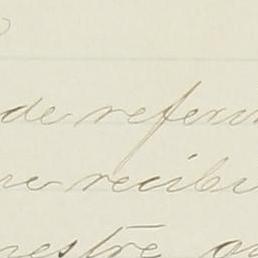 de referen
me recibi
mestre qu